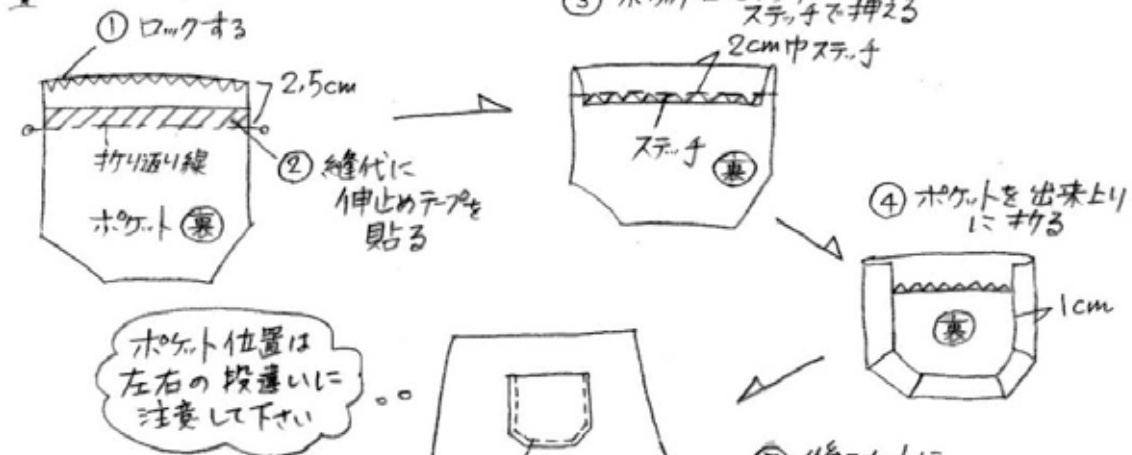 ① ロックする
2.5cm
折り返り線
② 縫代に
伸止めテープを
貼る
ポケット 裏
ステッチで押える
2cm巾ステッチ
ステッチ
裏
④ ポケットを出来上り
に折る
1cm
裏
ポケット位置は
左右の段違いに
注意して下さい